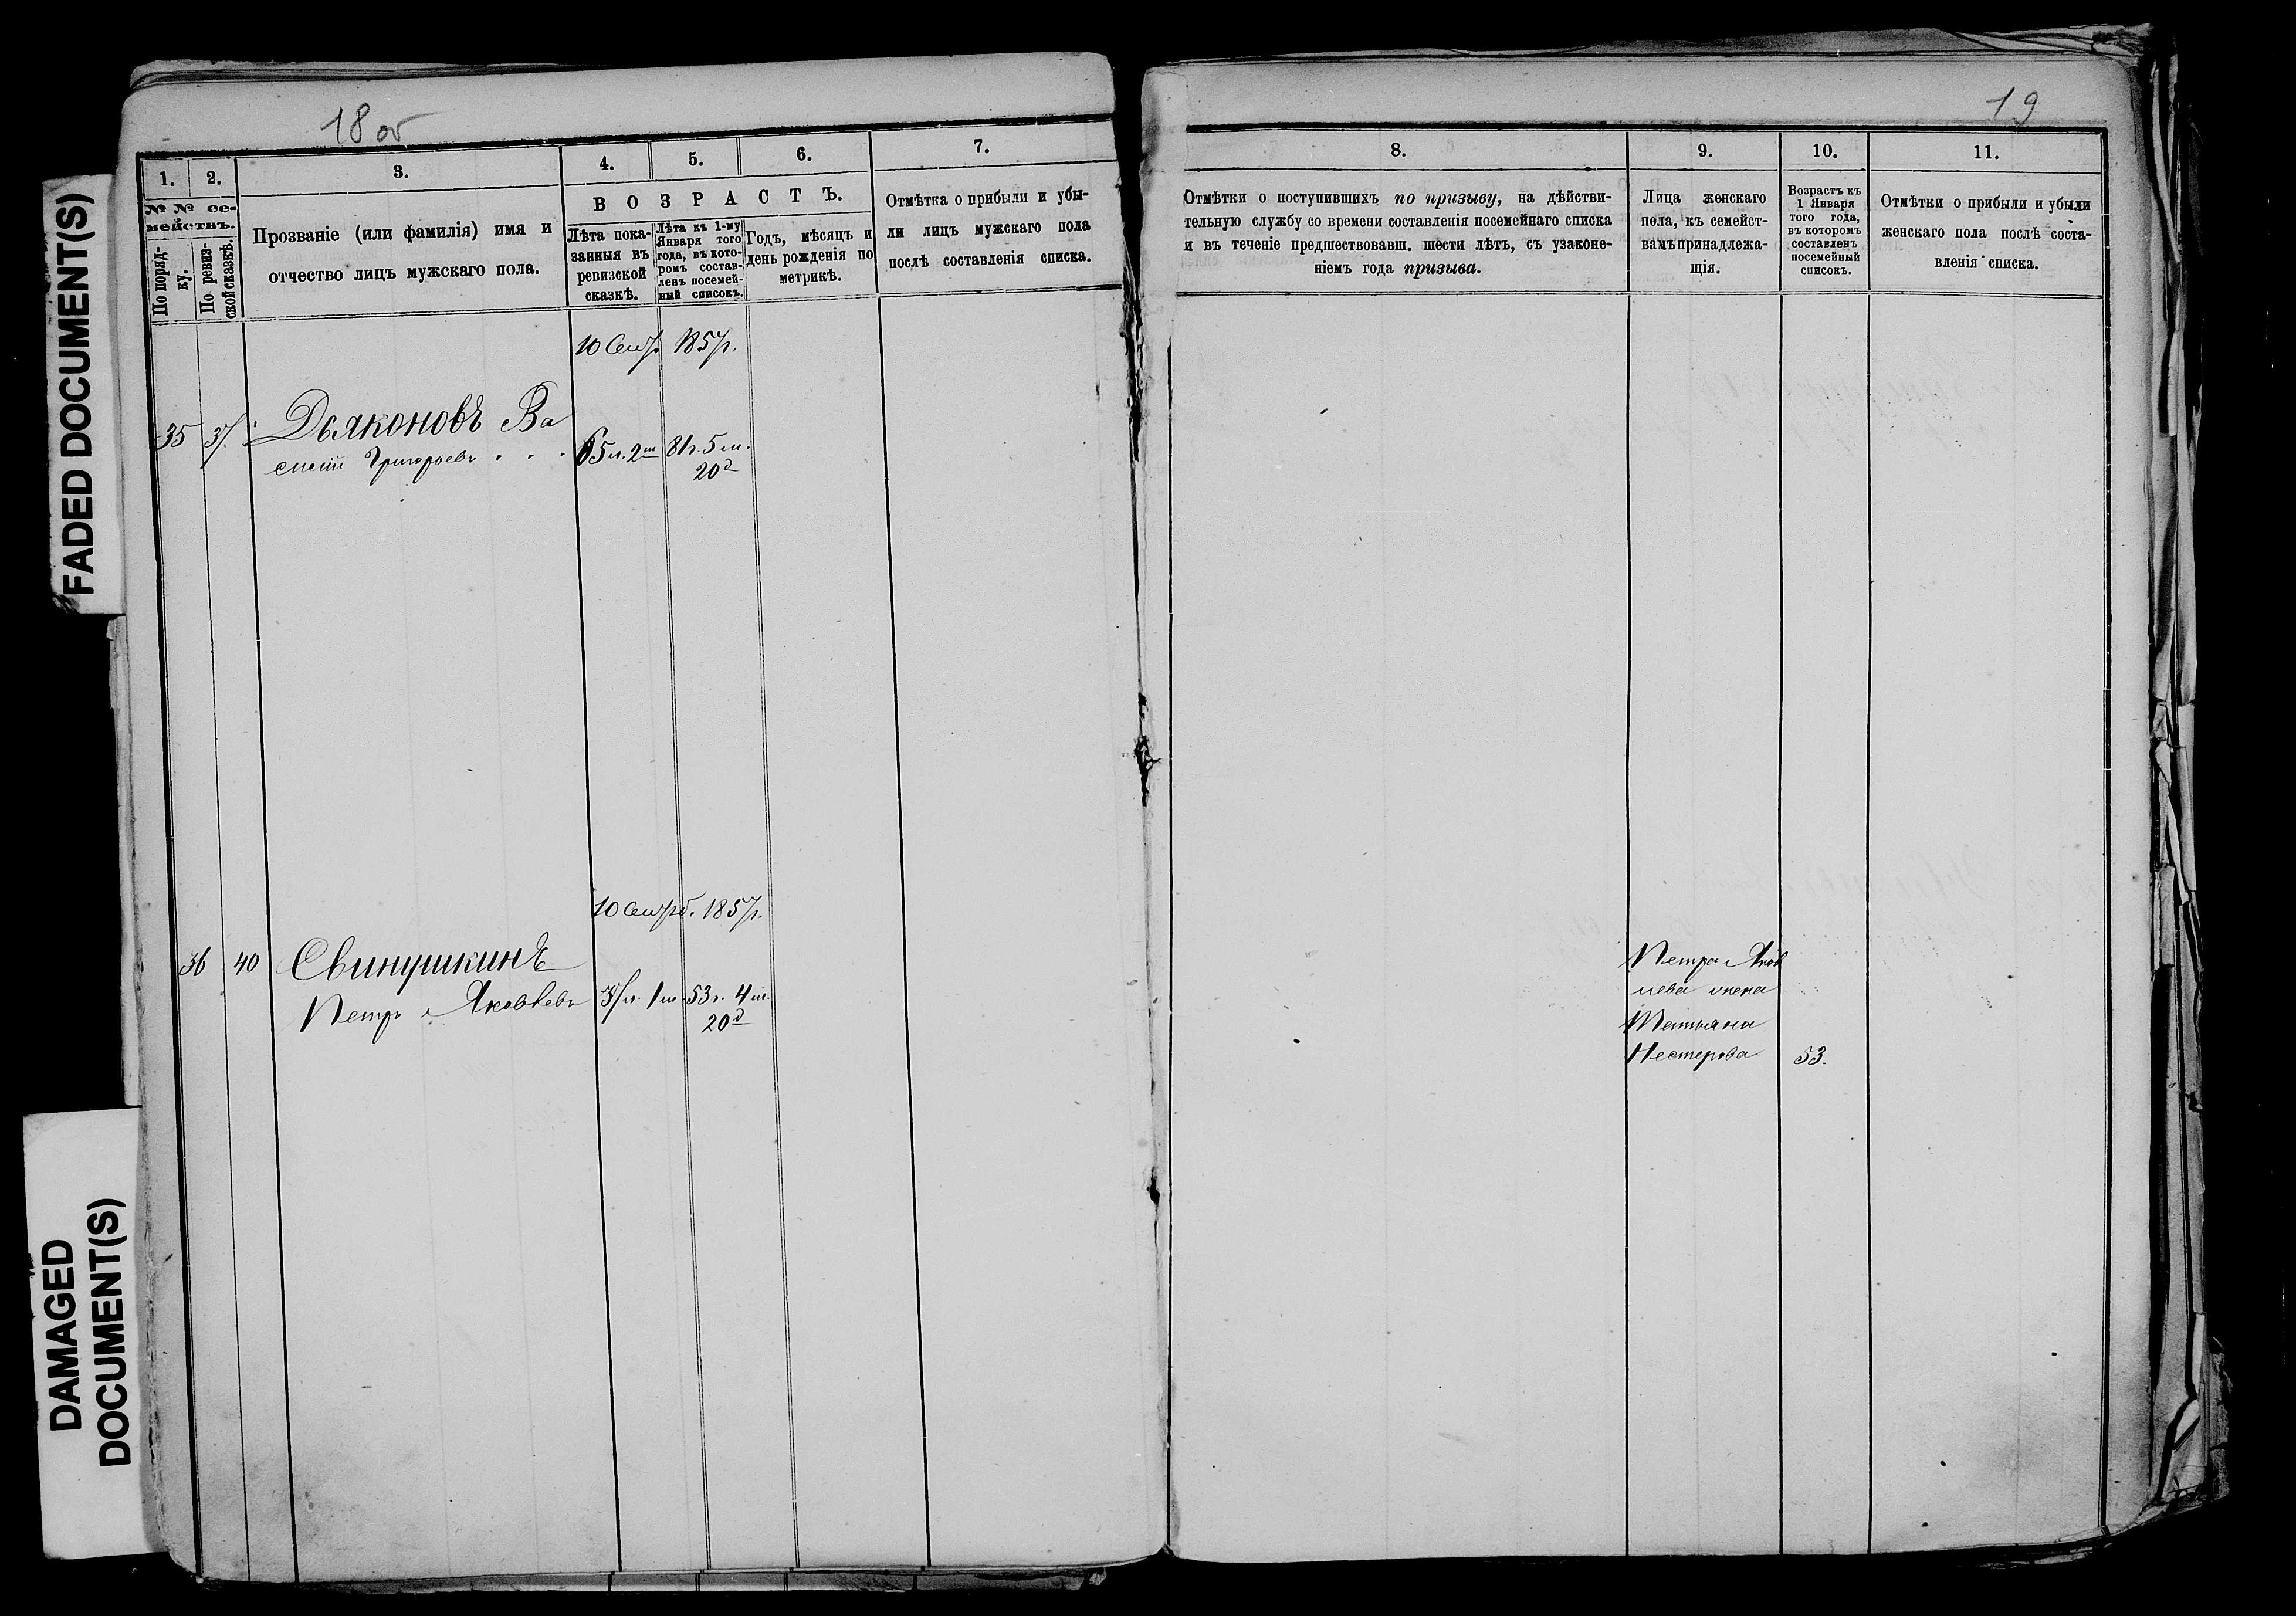 FADED DOCUMENT(S)
DAMAGED
DOCUMENT(S)
18 об
1. 2. 3. 4. 5. 6. 7.
№ № се-
мействъ.
По поряд-
ку.
По ревиз-
ской сказкѣ.
Прозваніе (или фамилія) имя и
отчество лицъ мужскаго пола.
ВОЗРАСТЪ.
Лѣта пока-
занныя въ
ревизской
сказкѣ.
Лѣта къ 1-му
Января того
года, въ кото-
ромъ состав-
ленъ посемей-
ный списокъ.
Годъ, мѣсяцъ и
день рожденія по
метрикѣ.
Отмѣтка о прибыли и убы-
ли лицъ мужскаго пола
послѣ составленія списка.
1857г.
35 37 Дьяконовъ Ва
силій Григорьевъ . . . 65 л. 2 м 81 г. 5 м.
20 д
1857г.
36 40 Свинушкинъ
Петръ Яковлевъ 37 л. 1 м 53 г. 4 м.
20 д
19
8. 9. 10. 11.
Отмѣтки о поступившихъ по призыву, на дѣйстви-
тельную службу со времени составленія посемейнаго списка
и въ теченіе предшествовавш. шести лѣтъ, съ узаконе-
ніемъ года призыва.
Лица женскаго
пола, къ семейст-
вамъ принадлежа-
щія.
Возрастъ къ
1 Января
того года,
въ которомъ
составленъ
посемейный
списокъ.
Отмѣтки о прибыли и убыли
женскаго пола послѣ соста-
вленія списка.
Петра Яков
лева жена
Татьяна
Нестерова 53.